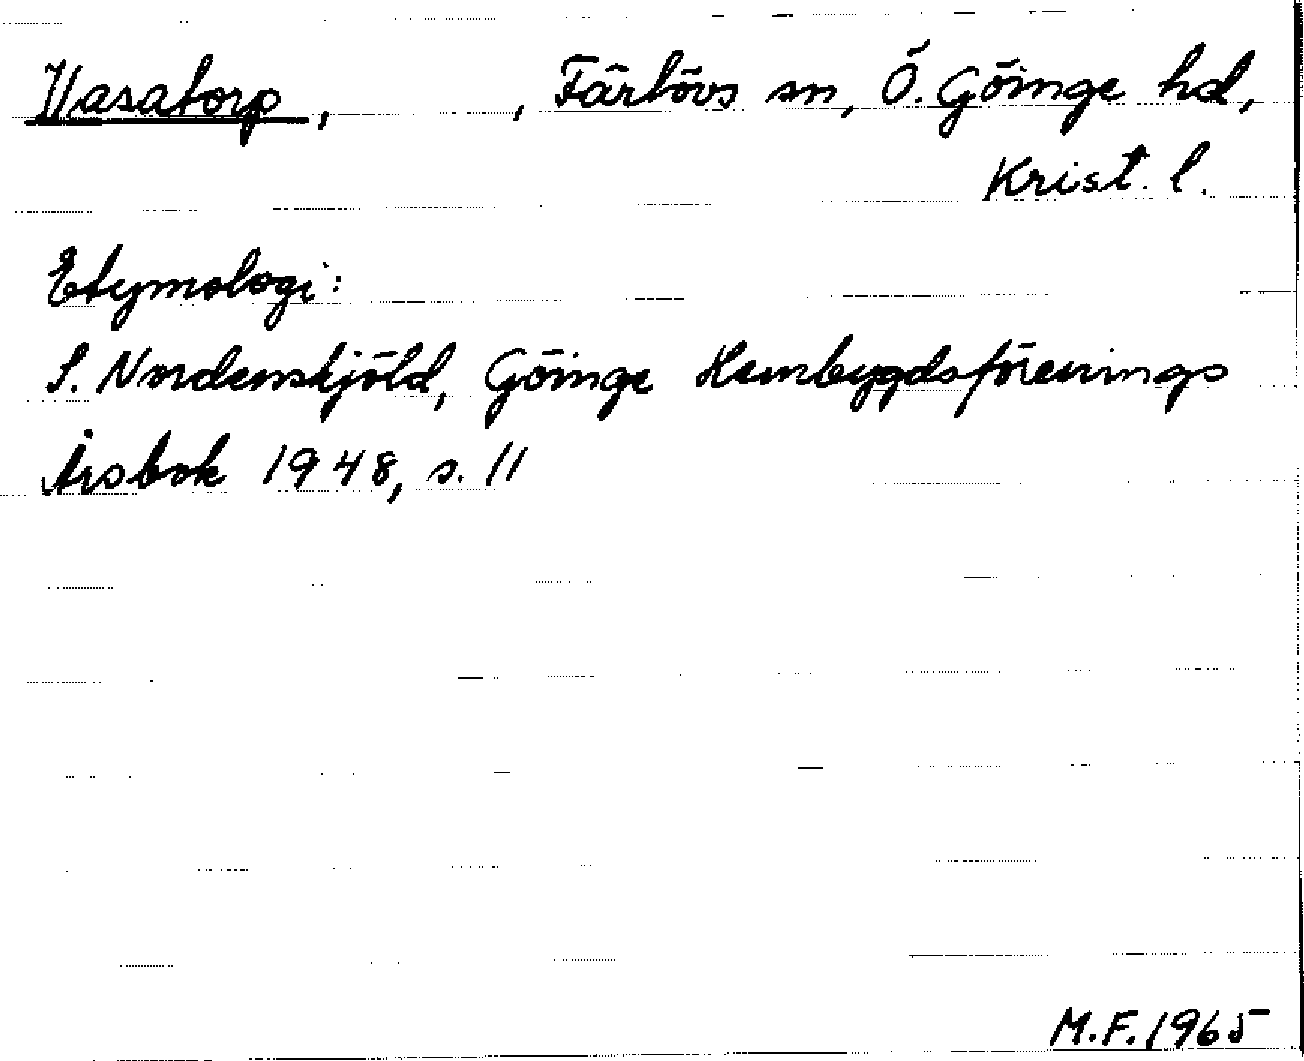 Vasatorp, , Färlövs sn, Ö. Göinge hd,
Krist. l.
Etymologi:
S. Nordenskjöld, Göinge Hembygdsförenings
Årsbok 1948, s. 11
M.F. 1965